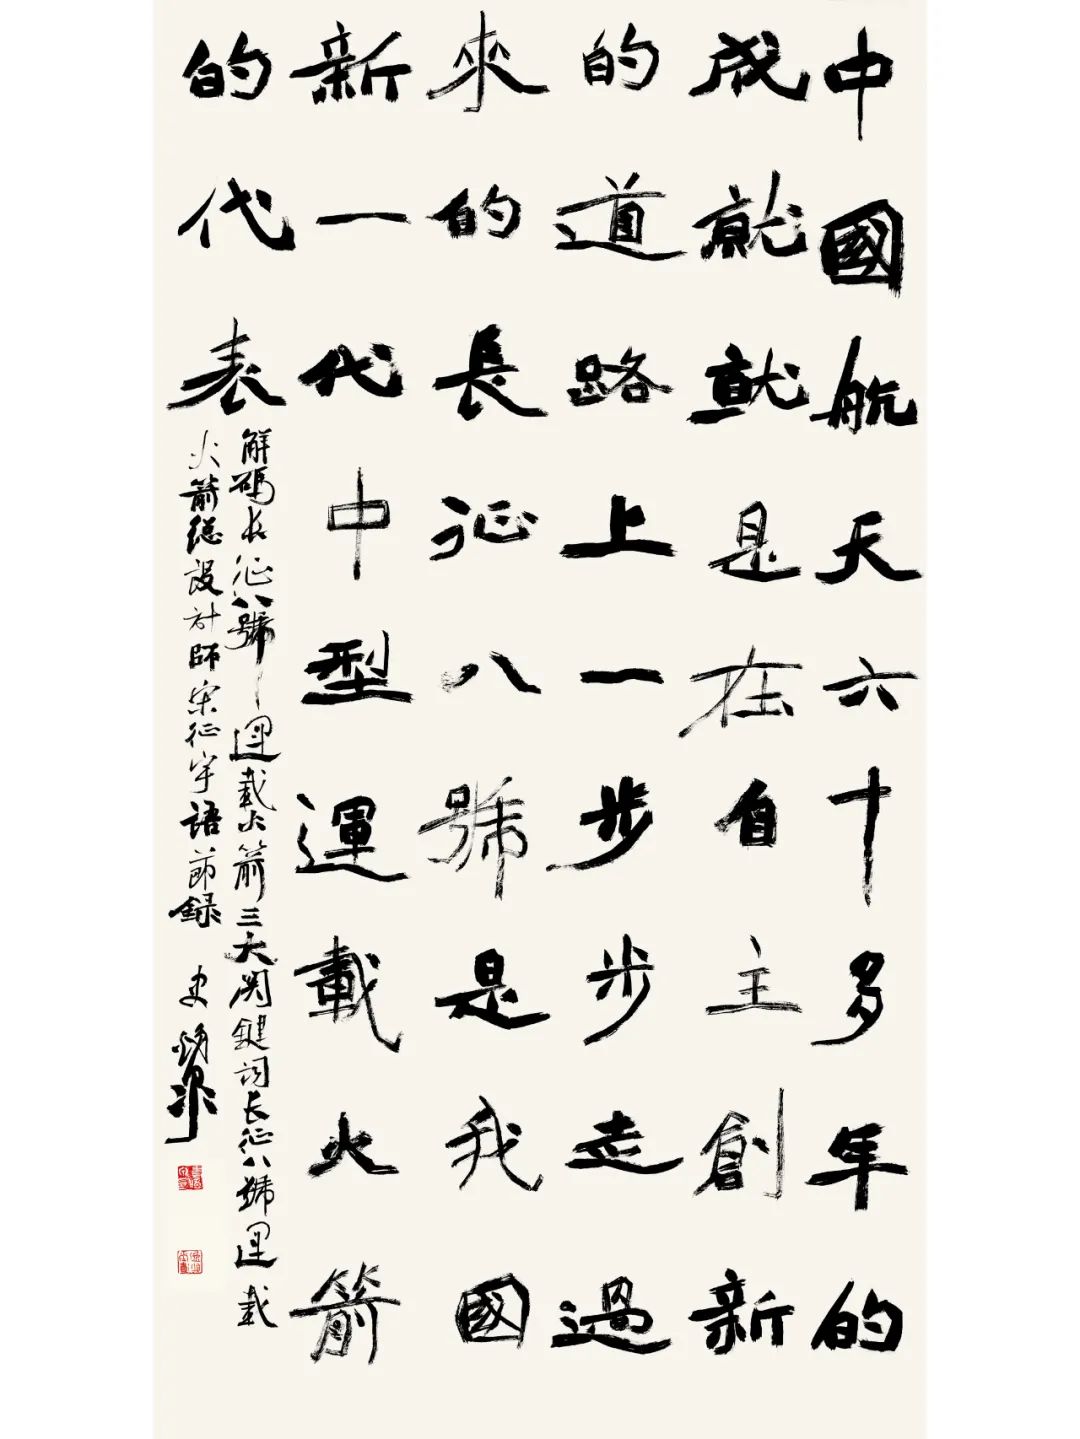 中國航天六十多年的
成就就是在自主創新
的道路上一步步走過
來的長征八號是我國
新一代中型運載火箭
的代表
解碼长征八號運載火箭三大関鍵词长征八號運載
火箭総設計師宋征宇語節録 史